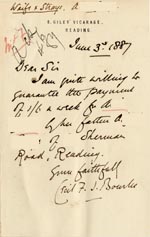 Waifs & Strays. A
S. GILES' VICARAGE,
READING
June 3rd 1887
Dear Sir
I am quite willing to
guarantee the payment
of 1/6 a week for the
by her father
of Sherman
Road, Reading.
Yours faithfully
Cecil F. J. Bourke